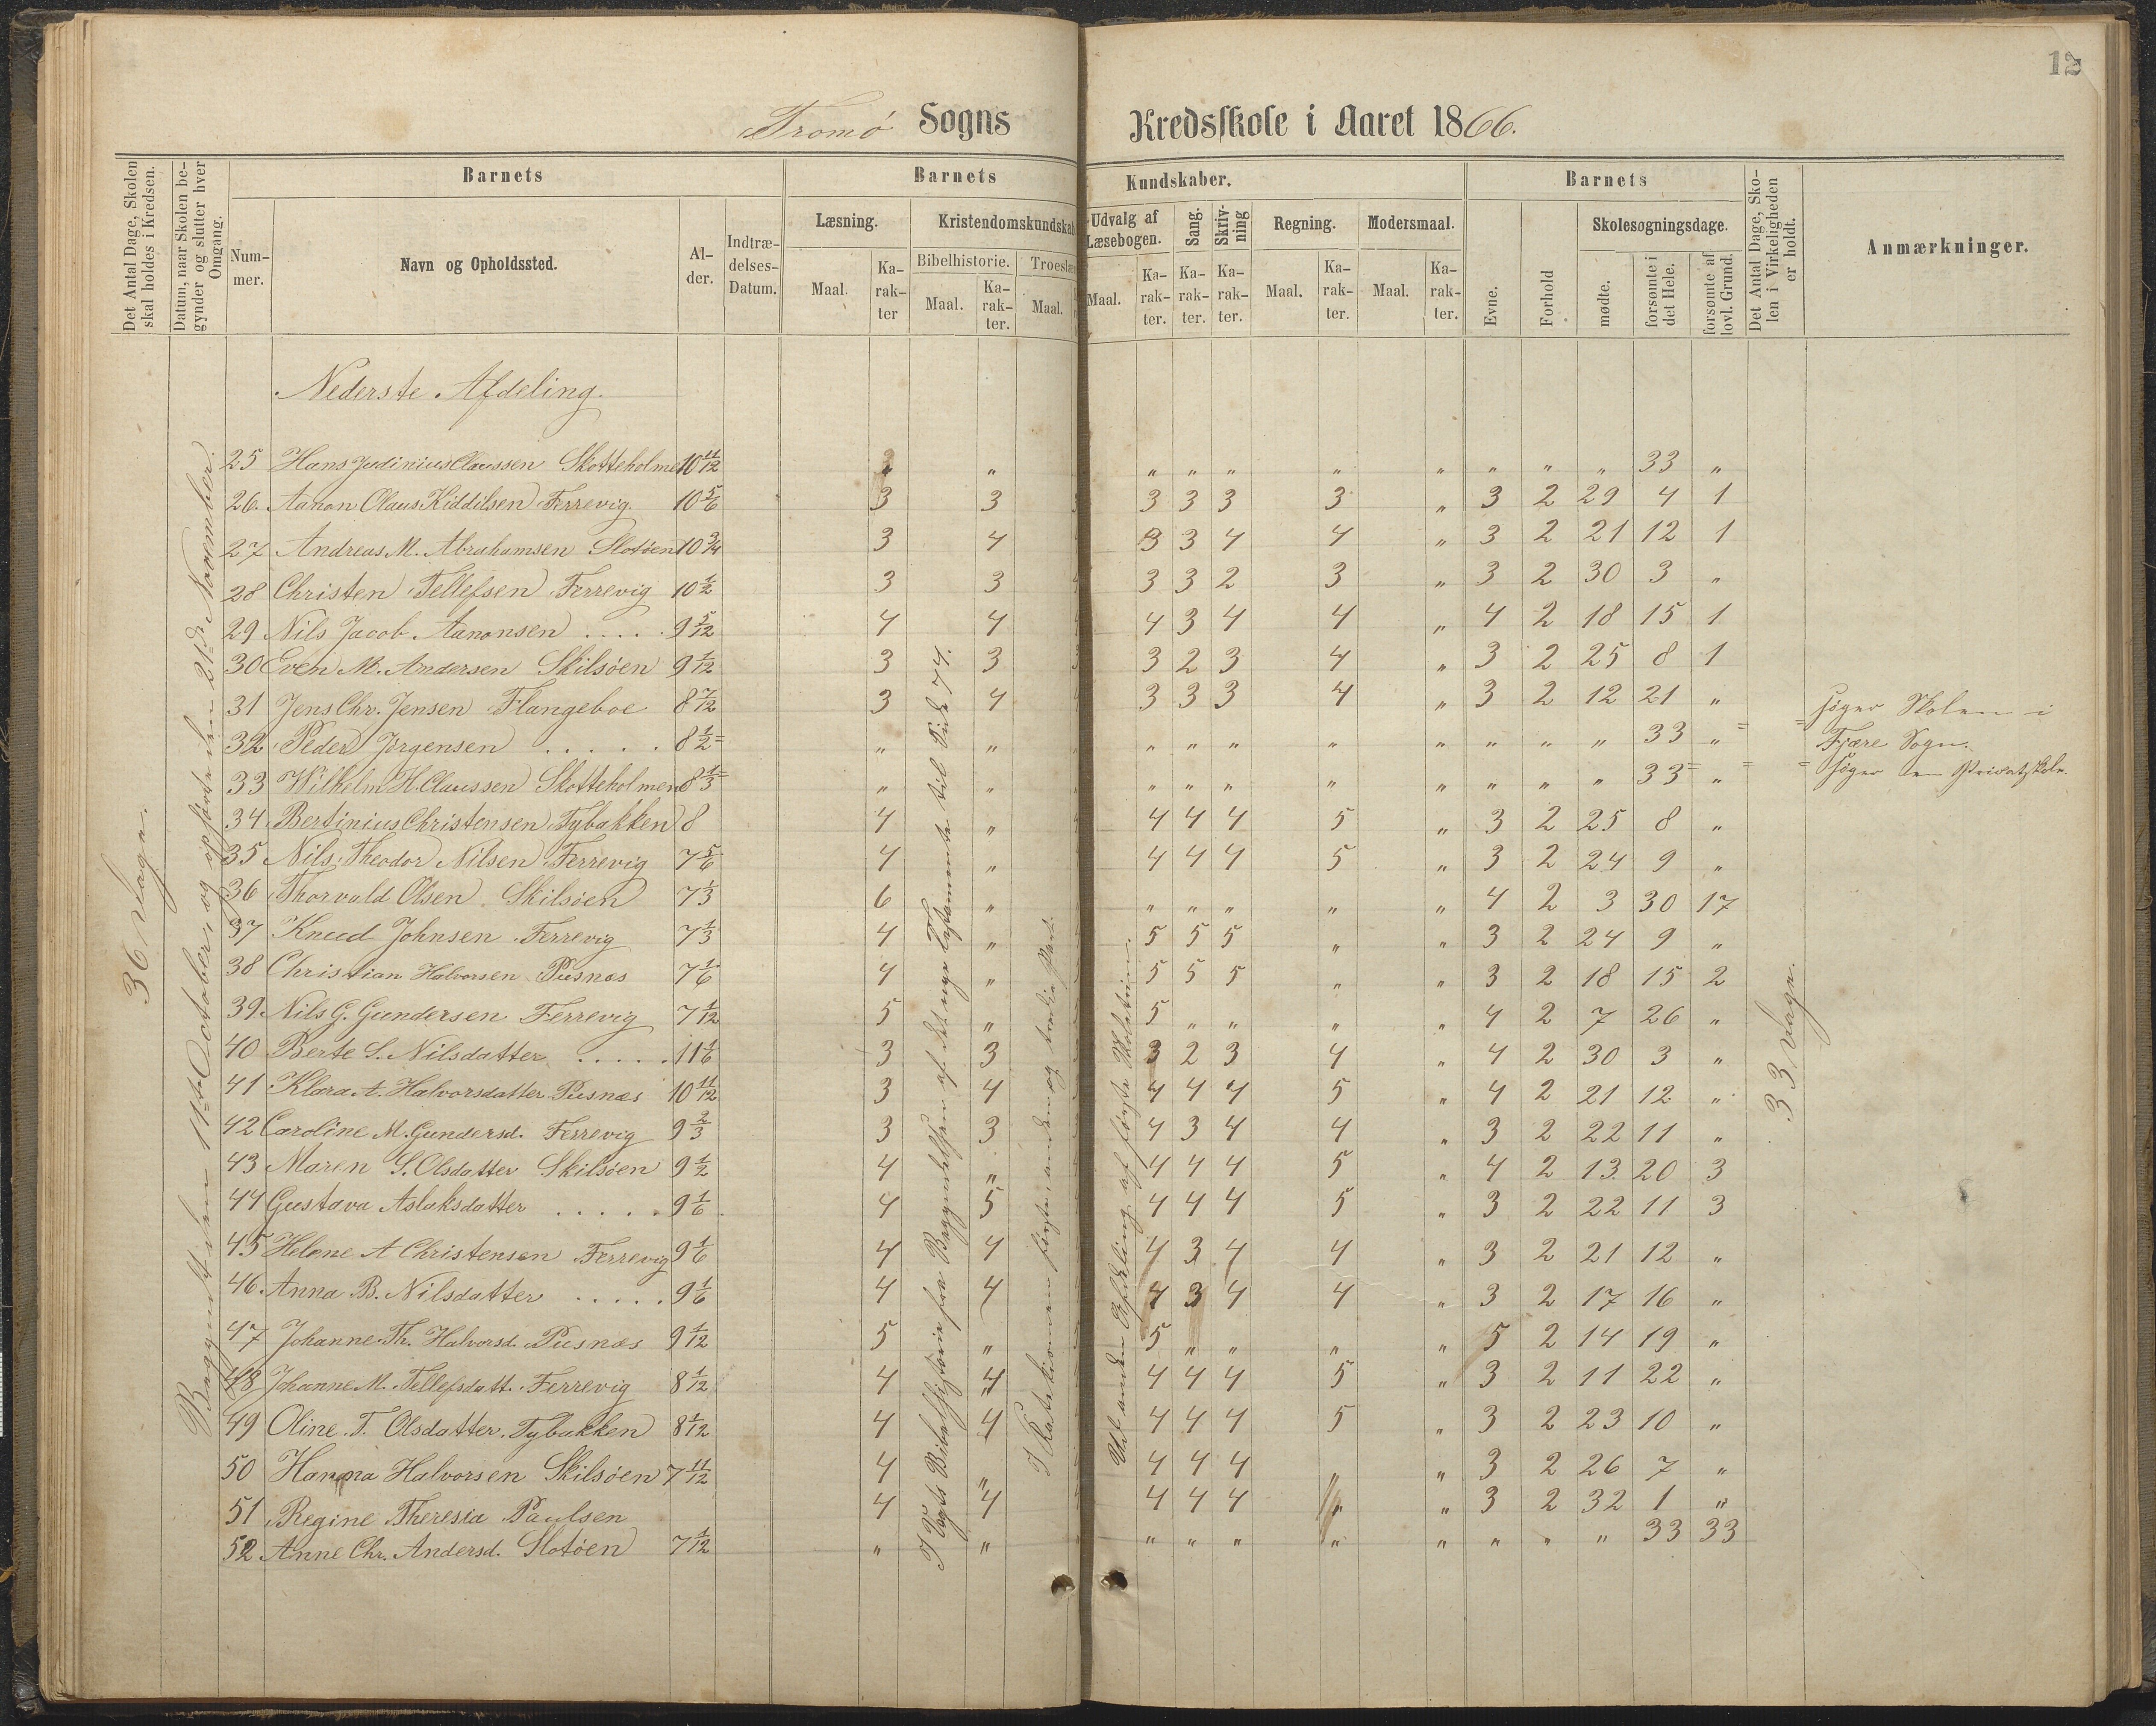 12
Tromø Sogns Kredsskole i Aaret 1866.
Det Antal Dage, Skolen skal holdes i Kredsen.
Datum, naar Skolen begynder og slutter hver Omgang.
Barnets
Nummer.
Navn og Opholdssted.
Alder.
Indtrædelses-Datum.
Barnets Kundskaber.
Læsning.
Maal.
Karakter
Kristendomskundskab
Bibelhistorie.
Maal.
Karakter.
Troeslære
Maal.
Udvalg af Læsebogen.
Maal.
Karakter.
Sang.
Karakter.
Skrivning
Karakter.
Regning.
Maal.
Karakter.
Modersmaal.
Maal.
Karakter.
Barnets
Evne.
Forhold
Skolesøgningsdage.
mødte.
forsømte i det Hele.
forsømte af lovl. Grund.
Det Antal Dage, Skolen i Virkeligheden er holdt.
Anmærkninger.
36 Dage.
Begyndt den 11te October og opførte den 21de November.
Nederste Afdeling.
25 Hans Judinius Claussen Skotteholmen 10 11/12 " " " " " " " " " " 33 "
26. Aanon Olaus Kiddilsen Ferrevig. 10 5/6 3 3 3 3 3 3 " 3 2 29 4 1
27 Andreas M. Abrahamsen Slotøen 10 3/4 3 4 3 3 4 4 " 3 2 21 12 1
28 Christen Tellefsen Ferrevig 10 1/2 3 3 3 3 2 3 " 3 2 30 3 "
29 Nils Jacob Aanonsen . . . . 9 5/12 4 4 4 3 4 4 " 4 2 18 15 1
30 Even M. Andersen Skilsøen 9 1/12 3 3 3 2 3 4 " 3 2 25 8 1
31 Jens Chr. Jensen Flangeboe 8 7/12 3 4 3 3 3 4 " 3 2 12 21 "
32 Peder Jørgensen . . . . . 8 1/2 = " " " " " " " " " " 33 " = = søger Skolen i Fjære Sogn.
33 Wilhelm H. Claussen Skotteholmen 8 1/3 = " " " " " " " " " " 33 = " = = søger en Privatskole.
34 Bertinius Christensen Tybakken 8 4 " 4 4 4 5 " 3 2 25 8 "
35 Nils Theodor Nilsen Ferrevig 7 5/6 4 " 4 4 4 5 " 3 2 24 9 "
36 Thorvald Olsen Skilsøen 7 1/3 6 " " " " " " 4 2 3 30 17
37 Knud Johnsen Ferrevig 7 1/3 4 " 5 5 5 " " 3 2 24 9 "
38 Christian Halvorsen Pusnæs 7 1/6 4 " 5 5 5 " " 3 2 18 15 2
39 Nils G. Gundersen Ferrevig 7 1/12 5 " 5 " " " " 4 2 7 26 "
40 Berte S. Nilsdatter . . . . . 11 1/6 3 3 3 2 3 4 " 4 2 30 3 "
41 Klara A. Halvorsdatter Pusnæs 10 11/12 3 4 4 4 4 5 " 4 2 21 12 "
42 Caroline M. Gundersd. Ferrevig 9 2/3 3 3 4 3 4 4 " 3 2 22 11 "
43 Maren S. Olsdatter Skilsøen 9 1/2 4 " 4 4 4 5 " 4 2 13 20 3
44 Gustava Aslaksdatter . . . . . 9 1/6 4 5 4 4 4 5 " 3 2 22 11 3
45 Helene A Christensen Ferrevig 9 1/6 4 4 4 3 4 4 " 3 2 21 12 "
46. Anna B. Nilsdatter . . . . . 9 1/6 4 4 4 3 4 4 " 3 2 17 16 "
47 Johanne Th. Halvorsd. Pusnæs 9 1/12 5 " 5 " " " " 5 2 14 19 "
48 Johanne M. Tellefsdatt. Ferrevig 8 1/12 4 4 4 4 4 5 " 3 2 11 22 "
49 Oline T. Olsdatter. Tybakken 8 1/12 4 4 4 4 4 5 " 3 2 23 10 "
50 Hanna Halvorsen Skilsøen 7 11/12 4 " 4 4 4 " " 3 2 26 7 "
51 Regine Theresia Paulsen 4 4 4 4 4 " " 3 2 32 1 "
52 Anne Chr. Andersd. Slotøen 7 1/12 " " " " " " " " " " 33 33
I Vogts Bibelhistorie fra Begyndelsen af det nye Testamente til Side 74.
I Katekismen første, anden og tredie Part.
Til anden Afdeling af første Skoletrin.
33 Dage.